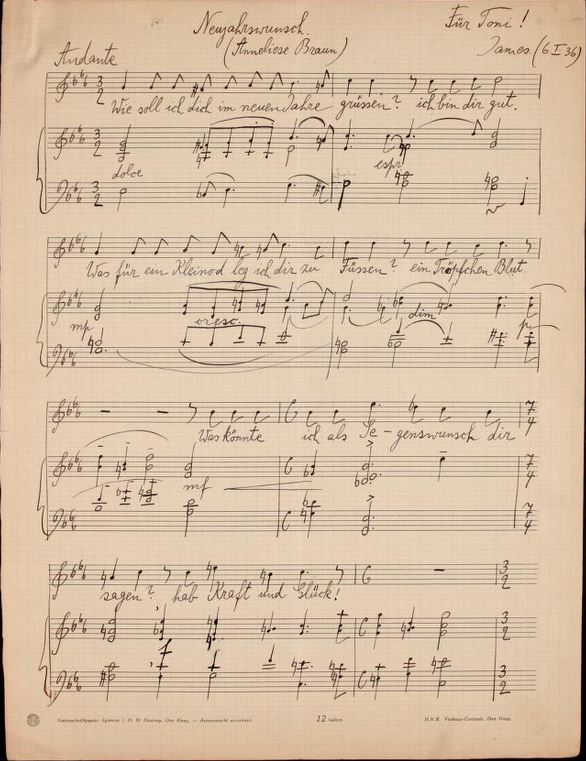 Neujahrswunsch. Für Toni!
(Anneliese Braun) James. (6 I 36)
Andante
Wie soll ich dich im neuen Jahre grüssen? ich bin dir gut.
dolce espr
Was für ein Kleinod leg ich dir zu Füssen? ein Tröpfchen Blut.
mp cresc. dim. p
Was könnte ich als Se-genswunsch dir
mf
sagen? hab Kraft und Glück!
f
12 H.V.R. Verkoop-Centrale, Den Haag.